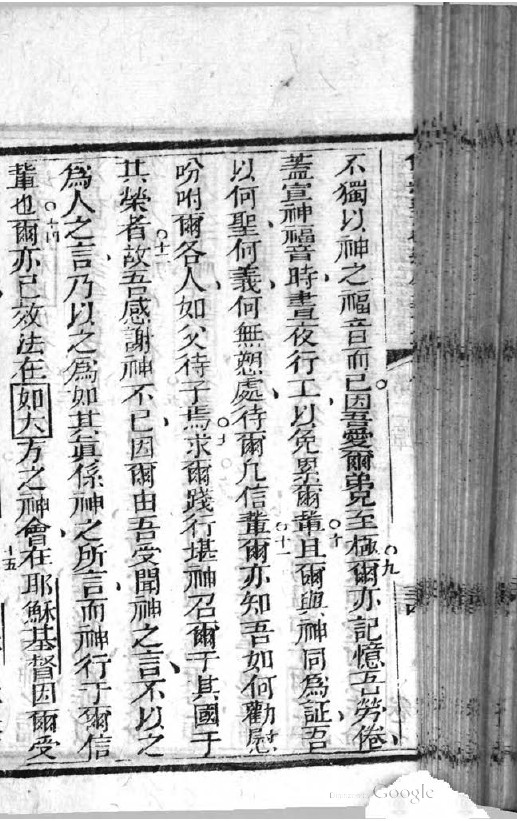 不獨以神之福音而已因吾愛爾弟兄至極○九爾亦記憶吾勞倦
蓋宣神福音時晝夜行工以免累爾輩○十且爾與神同為証吾
以何聖何義何無愬處待爾凡信輩○十一爾亦知吾如何勸慰
吩咐爾各人如父待子焉○十二求爾踐行堪神召爾于其國于
其榮者○十三故吾感謝神不已因爾由吾受聞神之言不以之
為人之言乃以之為如其真係神之所言而神行于爾信
輩也○十四爾亦已效法在如大方之神會在耶穌基督因爾受
十五
Google